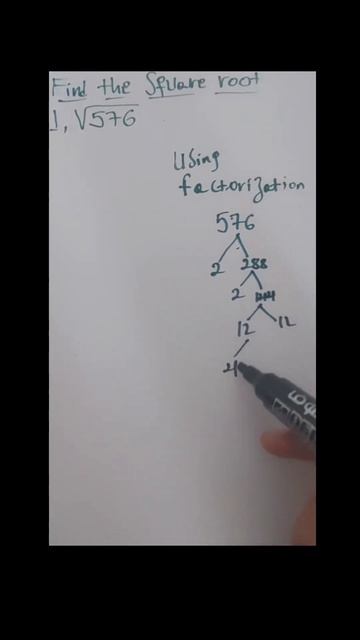 Find the Square root
1, √576
Using
factorization
576
2 288
2 144
12 12
4